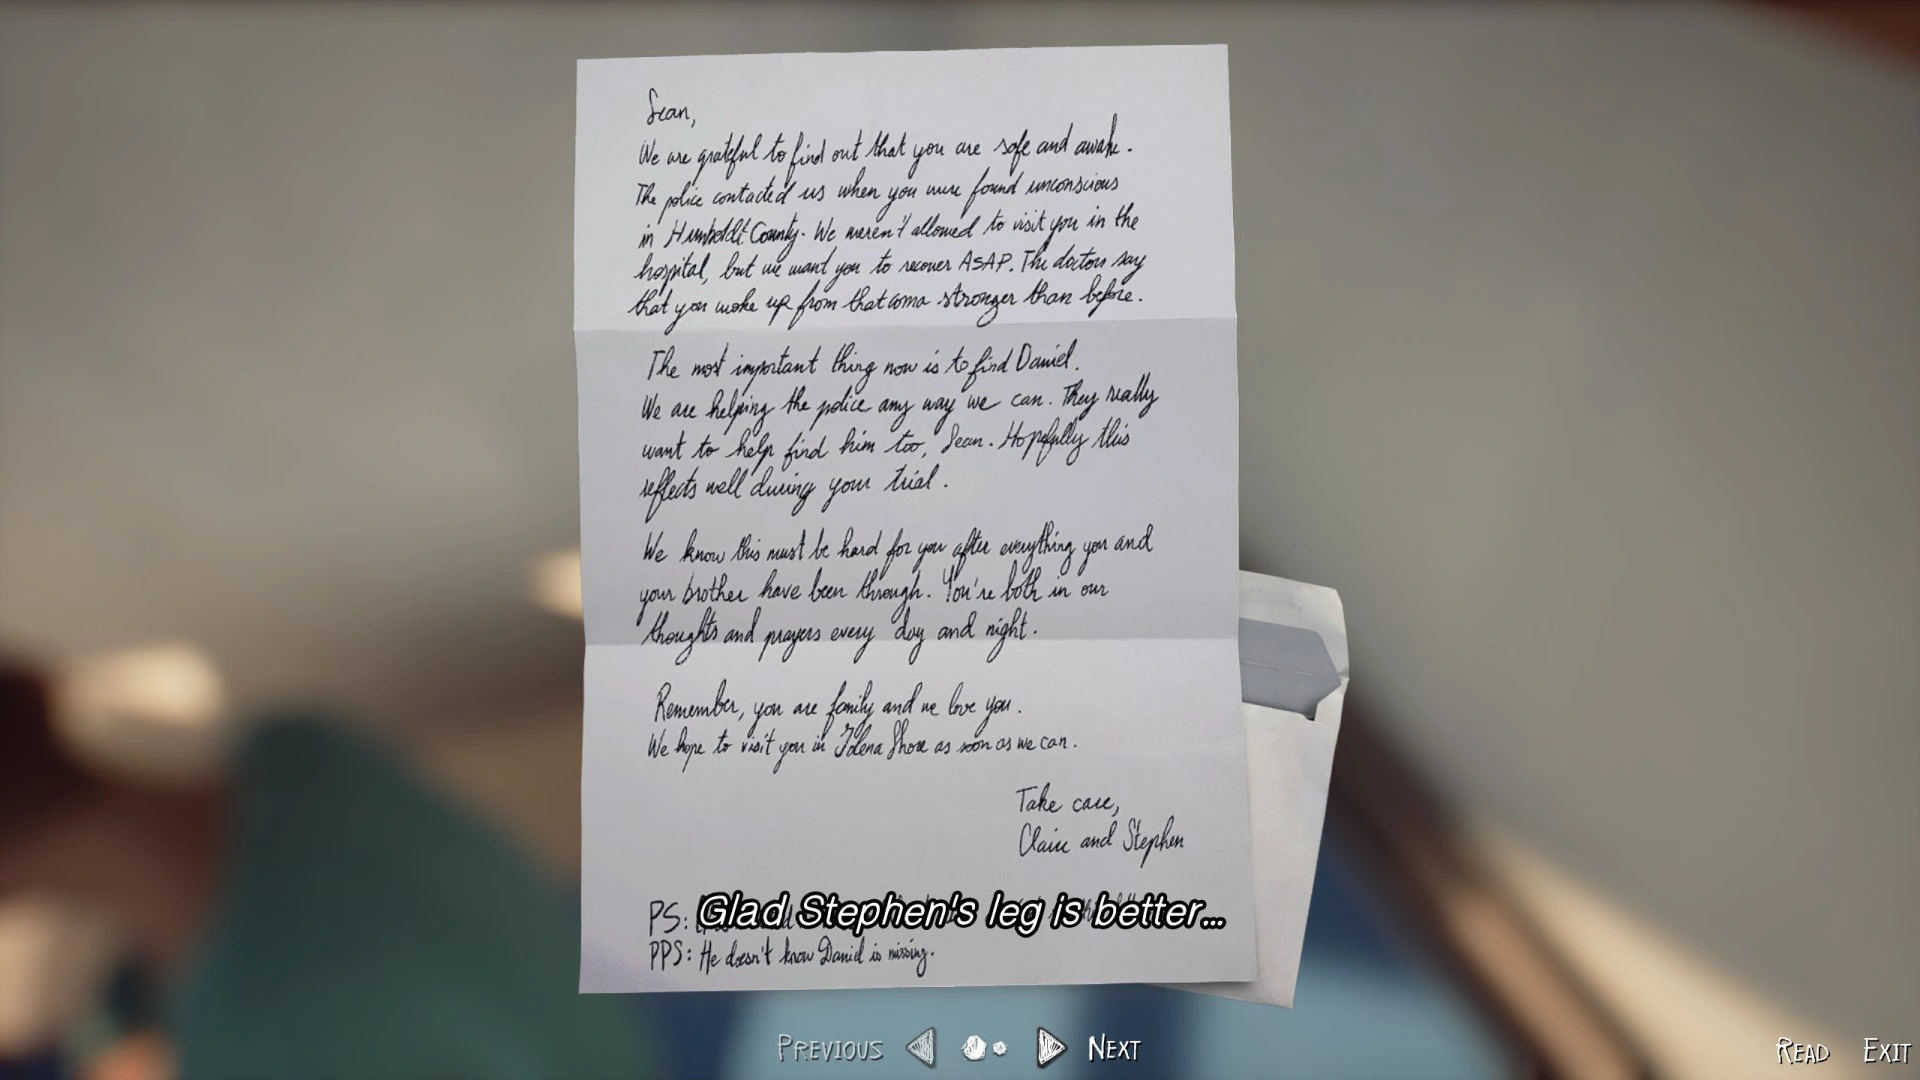 Sean,
We are grateful to find out that you are safe and awake.
The police contacted us when you were found unconscious
in Humboldt County. We weren't allowed to visit you in the
hospital, but we want you to recover ASAP. The doctors say
that you woke up from that coma stronger than before.
The most important thing now is to find Daniel.
We are helping the police any way we can. They really
want to help find him too, Sean. Hopefully this
reflects well during your trial.
We know this must be hard for you after everything you and
your brother have been through. You're both in our
thoughts and prayers every day and night.
Remember, you are family and we love you.
We hope to visit you in Jolena Shore as soon as we can.
Take care,
Claire and Stephen
PS:
Glad Stephen's leg is better...
PPS: He doesn't know Daniel is missing.
PREVIOUS NEXT
READ EXIT